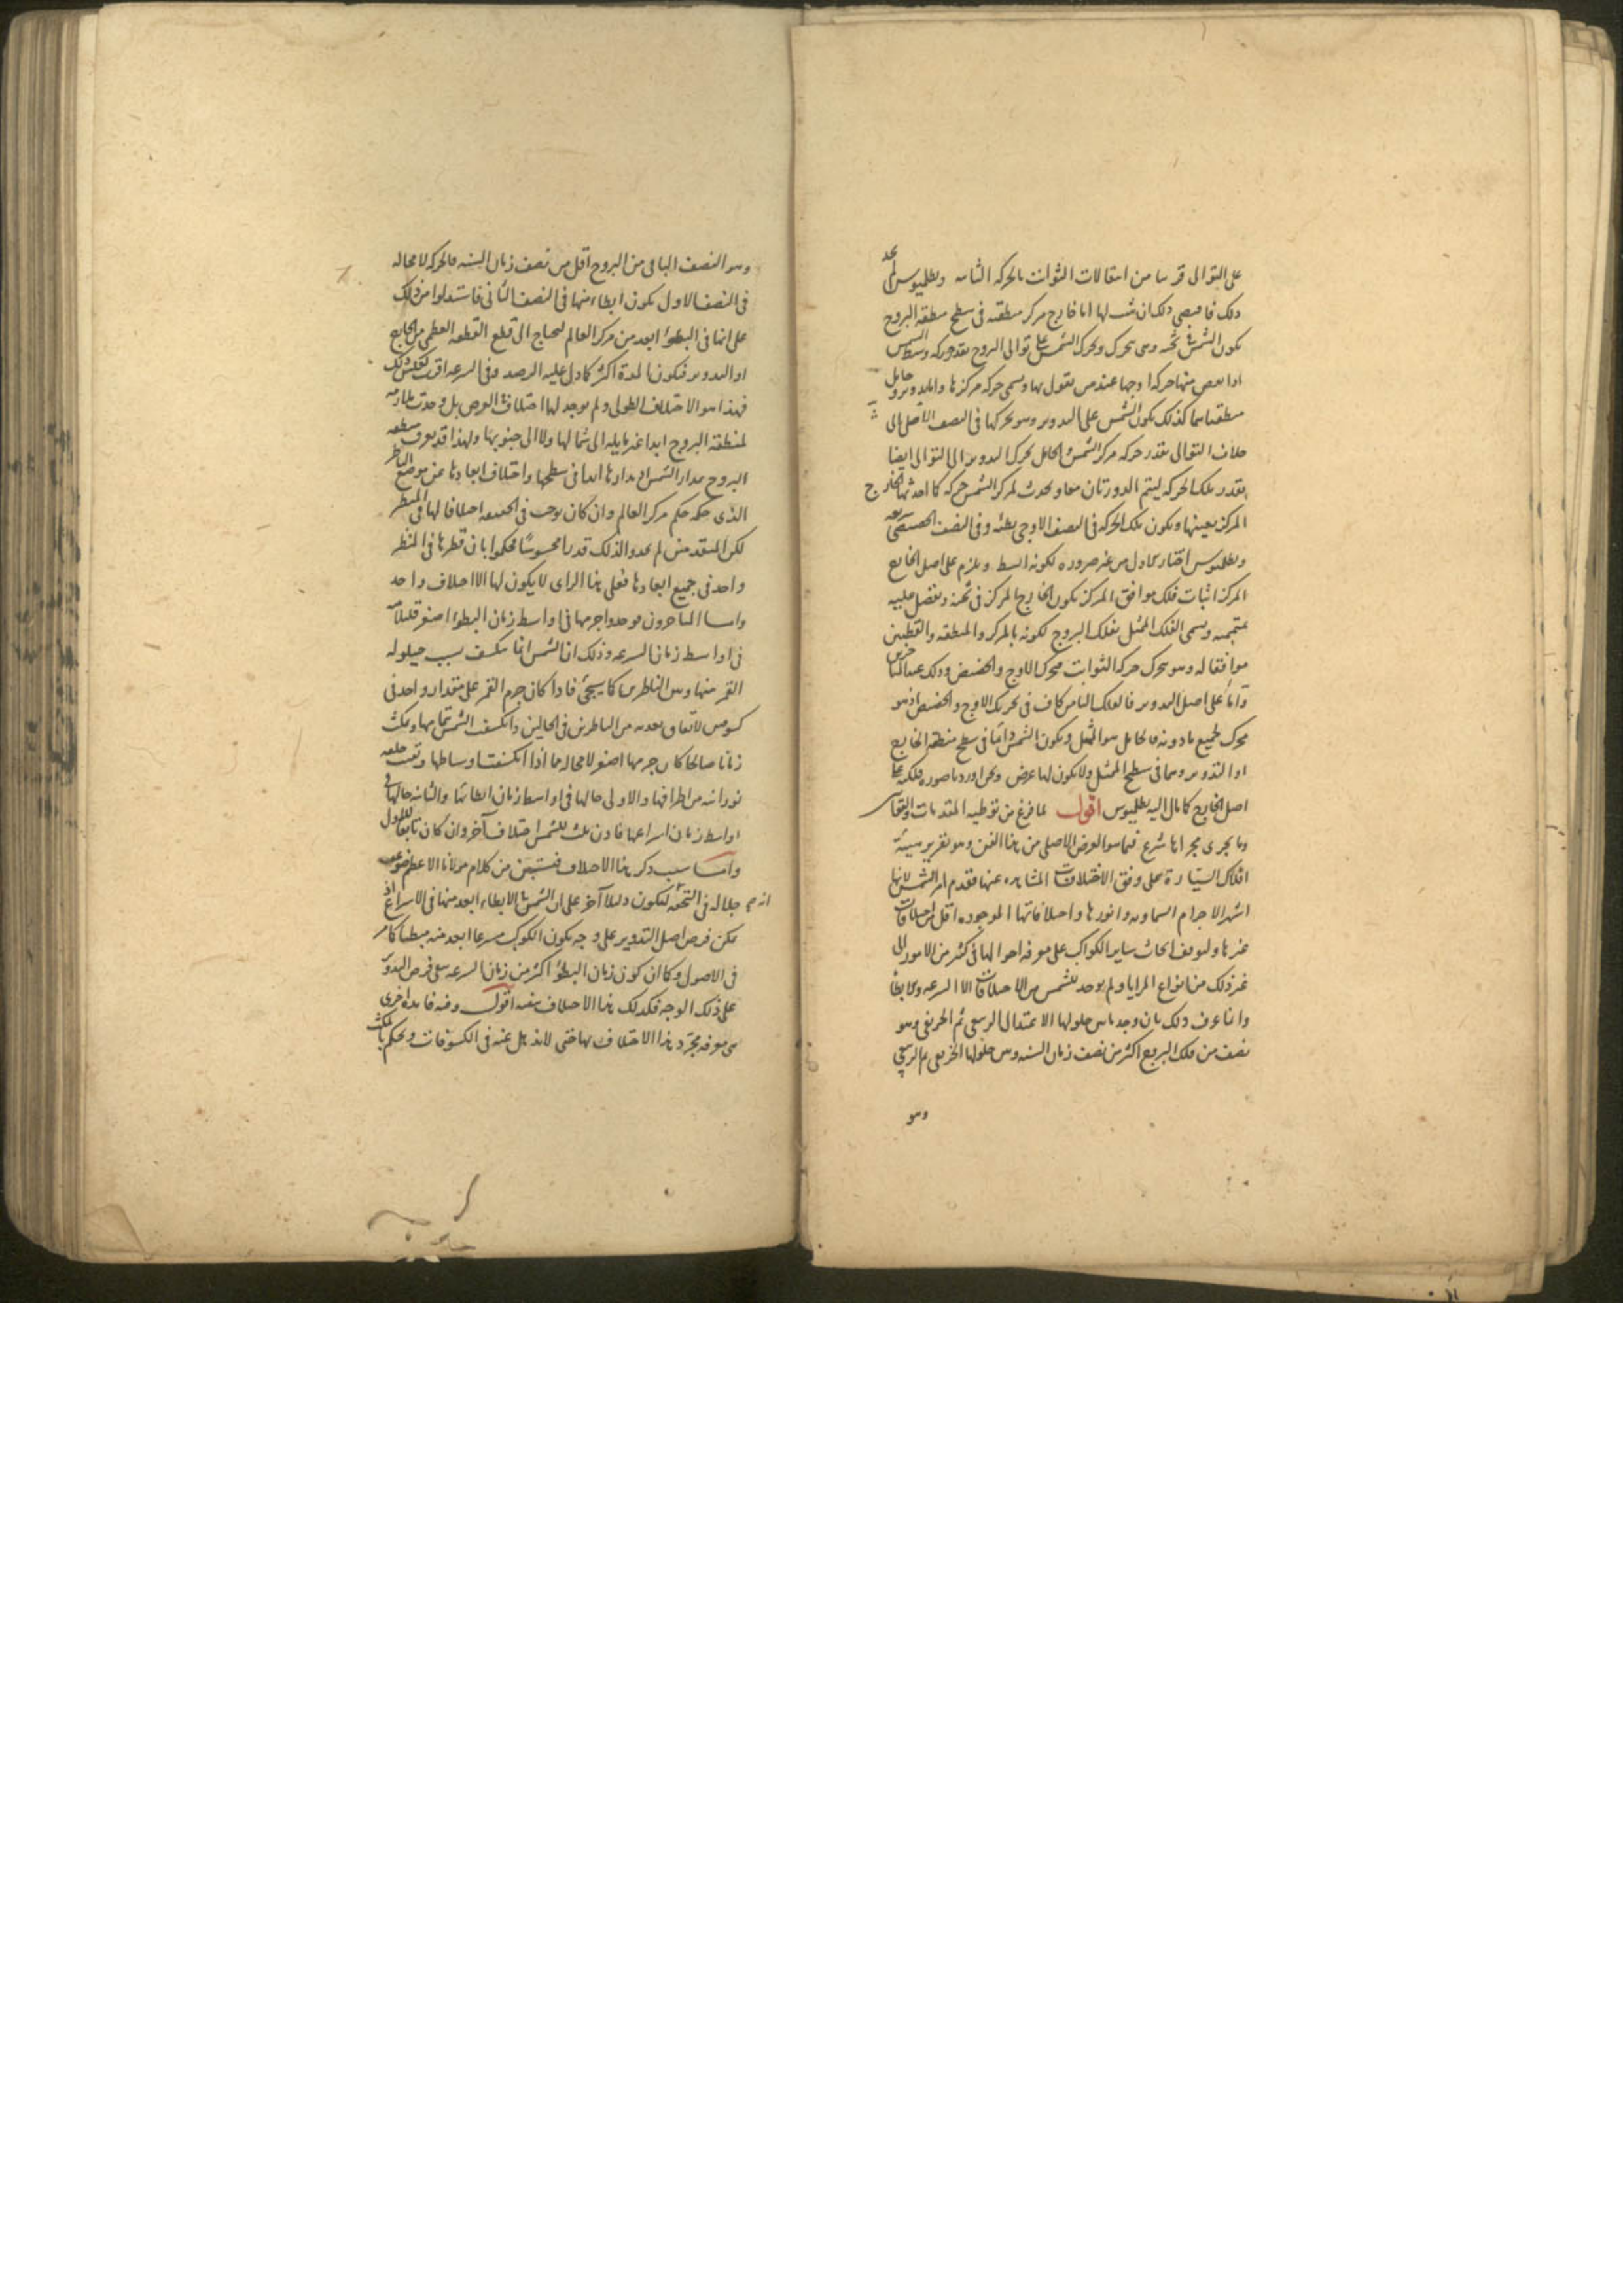 على التوالى قريبا من انتقالات الثوابت بالحركة الثانية وبطلميوس لم يجد
ذلك فاقتضى ذلك ان يثبت لها اما خارج مركز منطقته فى سطح منطقة البروج
يكون الشمس فى ثخنه وهى يتحرك ويحرك الشمس على توالى البروج بقدر حركة وسط الشمس
اذا نقص منها حركة اوجها عند من يقول بها ويسمى حركة مركزها واما تدويرا وحامل
منطقتاهما كذلك يكون الشمس على التدوير وهو يحركها فى النصف الاعلى الى
خلاف التوالى بقدر حركة مركز الشمس والحامل يحرك التدوير الى التوالى ايضا
بقدر تلك الحركة ليتم الدورتان معا ويحدث لمركز الشمس حركة كما احدثها الخارج
المركز بعينها ويكون تلك الحركة فى النصف الاوجى بطيئة وفى النصف الحضيضى سريعة
وبطلميوس اختار الاول من غير ضرورة لكونه ابسط ويلزم على اصل الخارج
المركز اثبات فلك موافق المركز يكون الخارج المركز فى ثخنه ويفصل عليه
متممه ويسمى الفلك الممثل بفلك البروج لكونه بالمركز والمنطقة والقطبين
موافقا له وهو يتحرك حركة الثوابت فيحرك الاوج والحضيض وذلك عند المتاخرين
واما على اصل التدوير فالفلك الثامن كاف فى تحريك الاوج والحضيض اذ هو
محرك لجميع ما دونه فالحامل هو الممثل ويكون الشمس دائما فى سطح منطقة الخارج
او التدوير وهما فى سطح الممثل ولا يكون لها عرض ونحن اوردنا صورة فلكيه على
اصل الخارج كما مال اليه بطلميوس اقول لما فرغ من توطية المقدمات
وما يجرى مجراها شرع فيما هو الغرض الاصلى من هذا الفن وهو تقرير هيئة
افلاك السيارة على وفق الاختلافات المشاهدة عنها فقدم امر الشمس لانها
اشهر الاجرام السماوية وانورها واختلافاتها الموجودة اقل من اختلافات
غيرها ولتوقف ابحاث ساير الكواكب على معرفة احوالها فى كثير من الامور الى
غير ذلك من انواع المزايا ولم يوجد للشمس من الاختلافات الا السرعة والابطاء
وانما عرف ذلك بان وجد ما بين حلولها الاعتدال الربيعى ثم الخريفى وهو
نصف من فلك البروج اكثر من نصف زمان السنة ومن حلولها الخريفى ثم الربيعى
وهو
وهو النصف الباقى من البروج اقل من نصف زمان السنة فالحركة لا محالة
فى النصف الاول يكون ابطاء منها فى النصف الثانى فاستدلوا من ذلك
على انها فى البطؤ ابعد من مركز العالم ليحتاج الى قطع القطعة العظمى من الخارج
او التدوير فيكون المدة اكثر كما دل عليه الرصد وفى السرعة اقرب لعكس ذلك
فهذا هو الاختلاف الطولى ولم يوجد لها اختلاف فى العرض بل وجدت ملازمة
لمنطقة البروج ابدا غير مايلة الى شمالها ولا الى جنوبها ولهذا قد يعرف منطقة
البروج بمدار الشمس اذ مدارها ابدا فى سطحها واختلاف ابعادها عن موضع الناظر
الذى حكمه حكم مركز العالم وان كان يوجب فى الحقيقة اختلافا لها فى المنظر
لكن المتقدمين لم يجدوا لذلك قدرا محسوسا فحكموا بان قطرها فى المنظر
واحد فى جميع ابعادها فعلى هذا الراى لا يكون لها الا اختلاف واحد
واما المتاخرون فوجدوا جرمها فى اواسط زمان البطؤ اصغر قليلا منه
فى اواسط زمان السرعة وذلك ان الشمس انما ينكسف بسبب حيلولة
القمر بينها وبين الناظرين كما سيجئ فاذا كان جرم القمر على مقدار واحد فى
كسوفين لاتفاق بعديه من الناظرين فى الحالين وانكسفت الشمس بتمامها ومكث
زمانا صالحا كان جرمها اصغر لا محالة مما اذا انكسفت اوساطها وبقيت حلقة
نورانية من اطرافها والاولى حالها فى اواسط زمان ابطائها والثانية حالها فى
اواسط زمان اسراعها فاذن يثبت للشمس اختلاف آخر وان كان تابعا للاول
واما سبب ذكر هذا الاختلاف فيتبين من كلام مولانا الاعظم
جلاله فى التحفه ليكون دليلا آخر على ان الشمس فى الابطاء ابعد منها فى الاسراع اذ
يمكن فرض اصل التدوير على وجه يكون الكوكب مسرعا ابعد منه مبطئا كما مر
فى الاصول وكما ان كون زمان البطؤ اكثر من زمان السرعة ينفى فرض التدوير
على ذلك الوجه فكذلك هذا الاختلاف ينفيه اقول وفيه فايدة اخرى
هى معرفة مجرد هذا الاختلاف بها حتى لا يذهل عنه فى الكسوفات ويحكم بالمكث